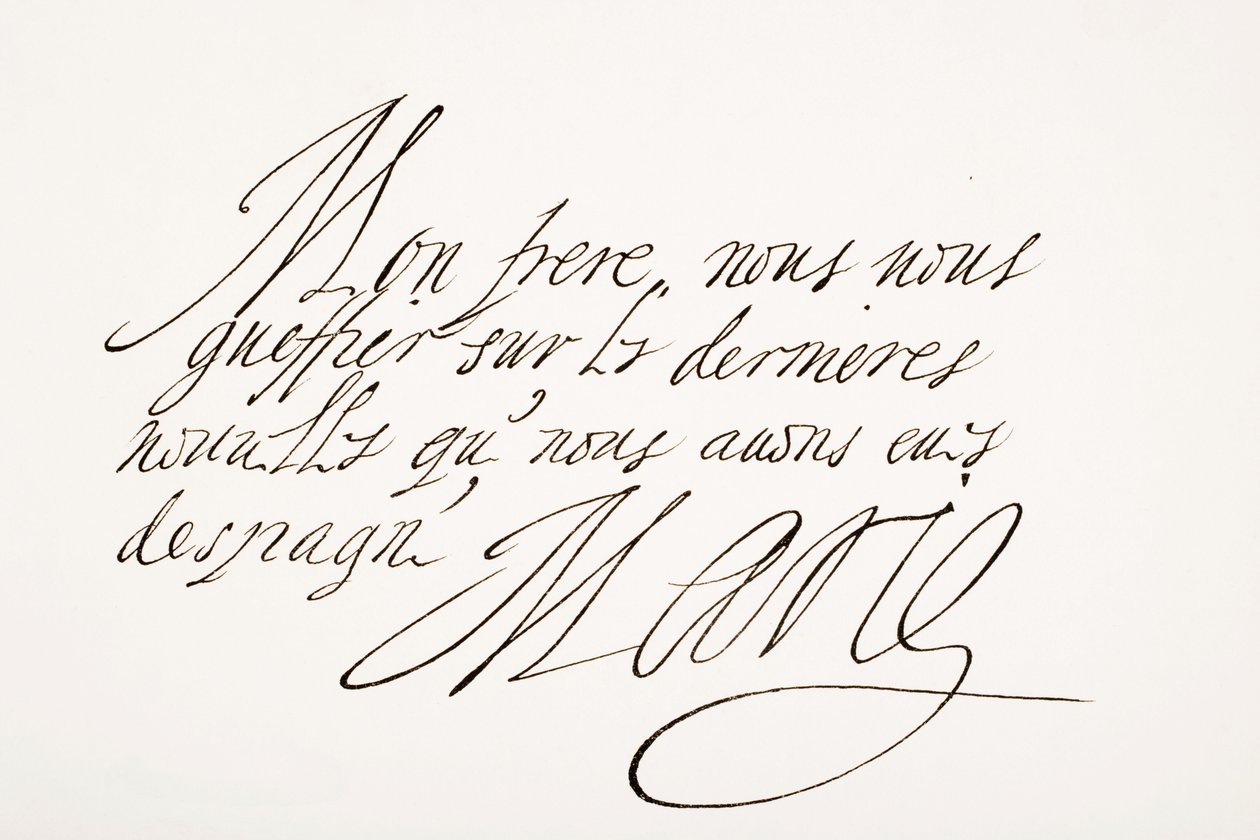 Mon frere, nous nous
gueffier sur les dernieres
nouuelles que nous auons eues
despagne Marie